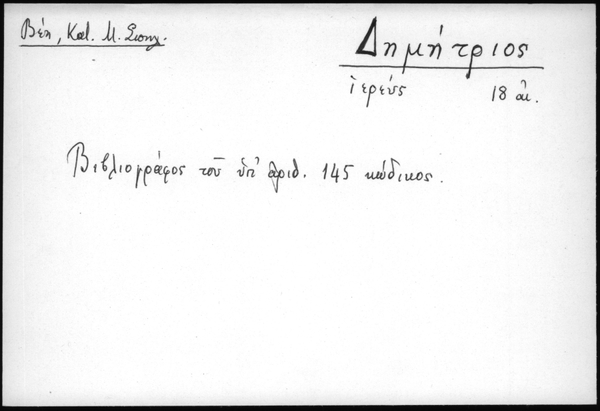 Βέη, Κατ. Μ.
Δημήτριος
ἱερεύς 18 αἰ.
Βιβλιογράφος τοῦ ὑπ' ἀριθ. 145 κώδικος.